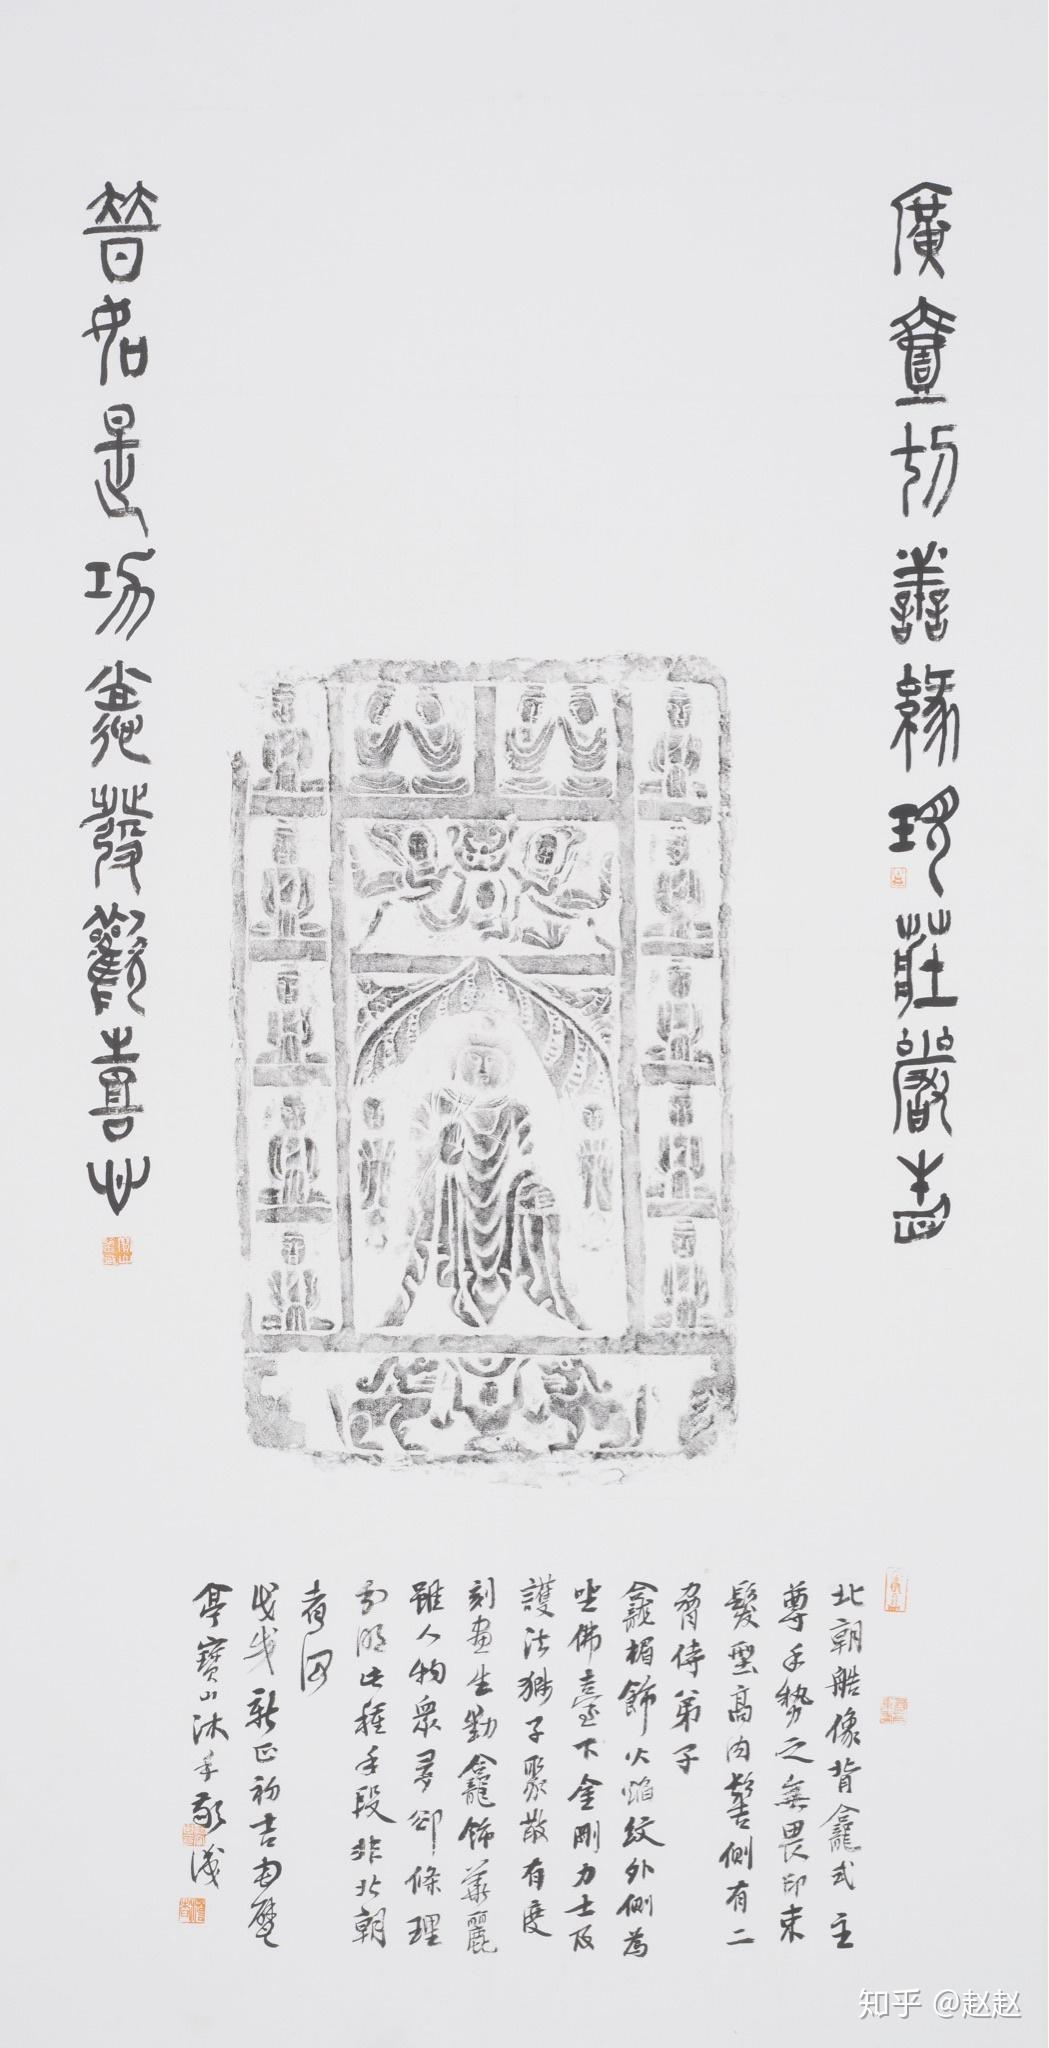 廣壹切善緣現莊嚴相
普如是功德發歡喜心
北朝艁像背龕式主
尊手勢之無畏印束
髮型高肉髻側有二
脅侍弟子
龕楣飾火焰紋外側為
坐佛臺下金剛力士及
護法狮子聚散有度
刻畫生動龕飾華麗
雖人物衆多卻條理
分明此種手段非北朝
者
戊戌新正初吉南壁
亭寶山沐手敬識
知乎 @赵赵